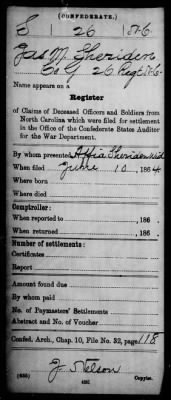 (CONFEDERATE.)
S | 26 | N.C.
Jas M Sheriden
Co G 26 Regt N.C.
Name appears on a
Register
of Claims of Deceased Officers and Soldiers from
North Carolina which were filed for settlement
in the Office of the Confederate States Auditor
for the War Department.
By whom presented Affia Sheriden Wid
When filed June 10, 1864
Where born
Where died
Comptroller:
When reported to , 186 .
When returned , 186 .
Number of settlements:
Certificates
Report
Amount found due
By whom paid
No. of Paymasters' Settlements
Abstract and No. of Voucher
Confed. Arch., Chap. 10, File No. 32, page 118
J. Nelson
Copyist.